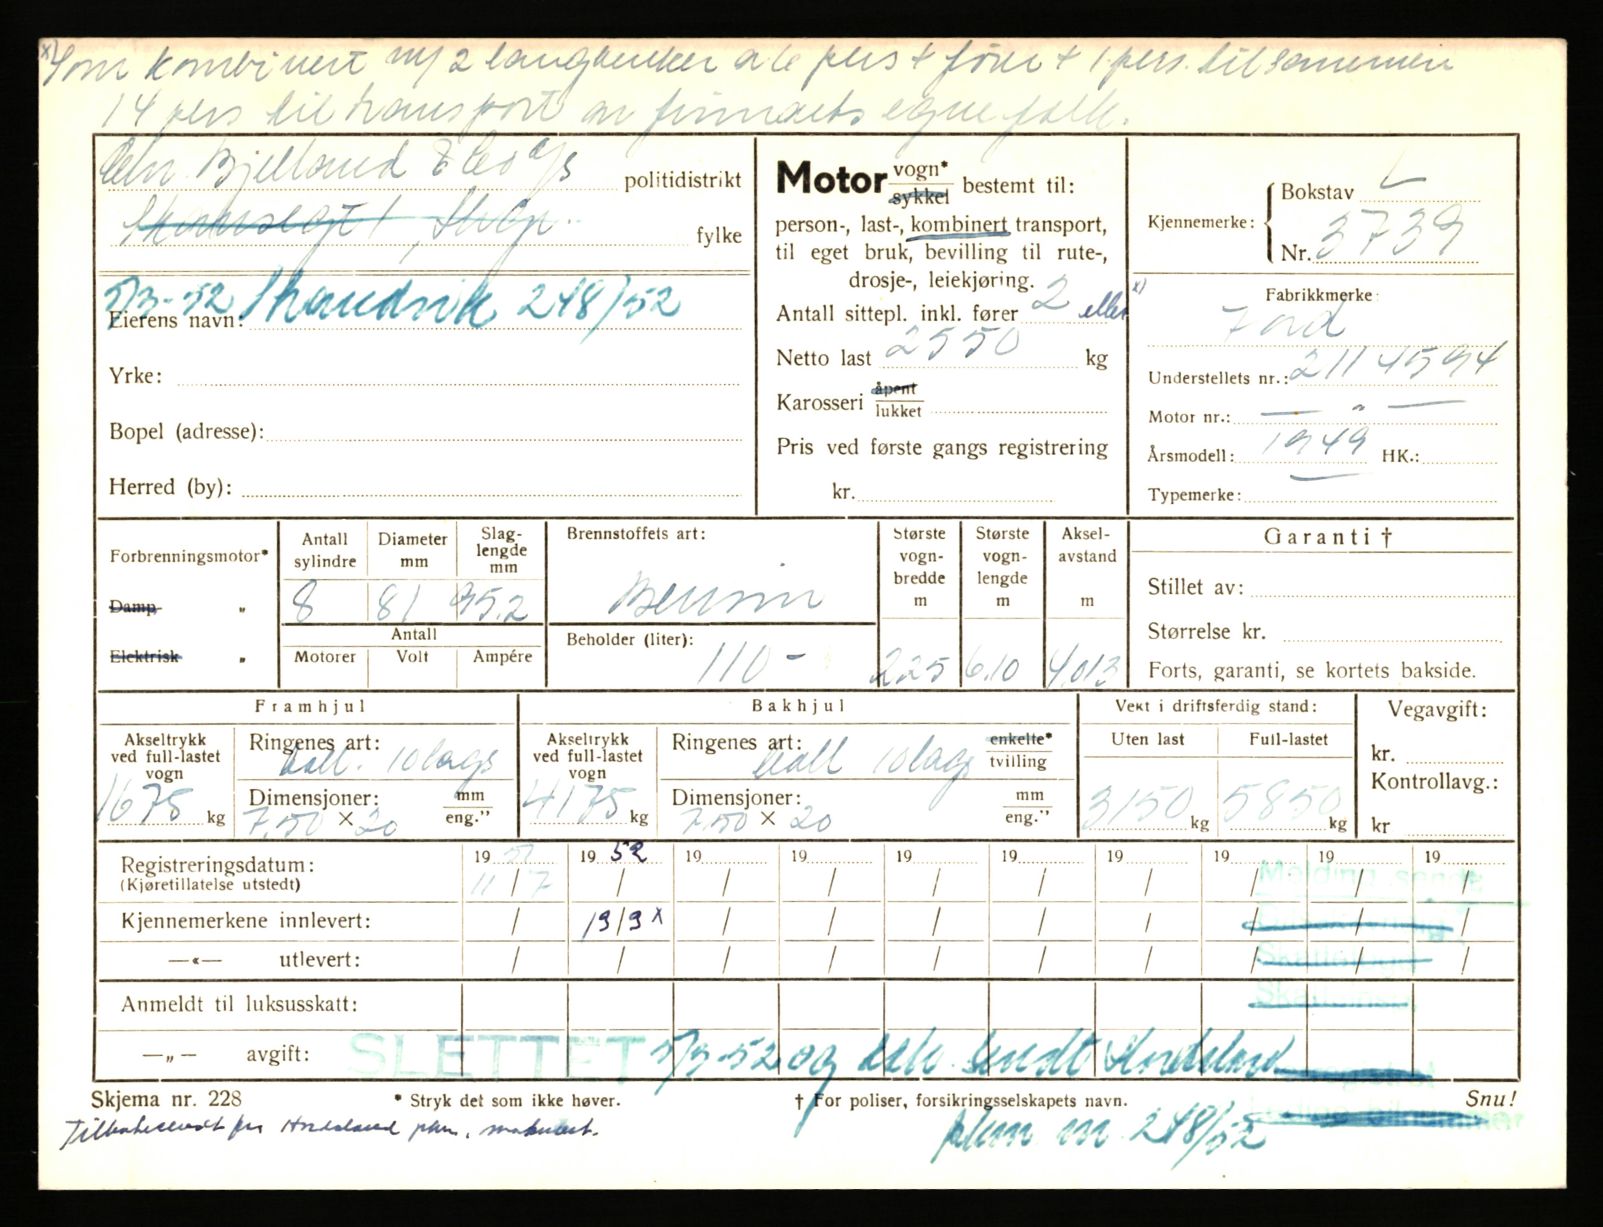 x) Som kombinert m/ 2 langbenker a 6 pers + fører + 1 pers. til sammen
14 pers til transport av firmaets egne folk.
Chr. Bjelland & Co a/s politidistrikt
fylke
5/3-52 Strandvik 248/52
Eierens navn:
Yrke:
Bopel (adresse):
Herred (by):
Motor vogn* sykkel bestemt til:
person-, last-, kombinert transport,
til eget bruk, bevilling til rute-,
drosje-, leiekjøring.
Antall sittepl. inkl. fører 2 eller x)
Netto last 2550 kg
Karosseri åpent lukket
Pris ved første gangs registrering
kr.
Kjennemerke: Bokstav L
Nr. 3739
Fabrikkmerke:
Ford
Understellets nr.: 2114594
Motor nr.: — " —
Årsmodell: 1949 HK.:
Typemerke:
Forbrenningsmotor*
Damp "
Elektrisk "
Antall sylindre 8
Diameter mm 81
Slag-lengde mm 95.2
Antall
Motorer Volt Ampére
Brennstoffets art:
Bensin
Beholder (liter):
110 -
Største vogn-bredde m 2.25
Største vogn-lengde m 6.10
Aksel-avstand m 4.013
Garanti †
Stillet av:
Størrelse kr.
Forts, garanti, se kortets bakside.
Framhjul
Akseltrykk ved full-lastet vogn 1675 kg
Ringenes art: ball. 10 lags
Dimensjoner: 7.50 × 20 mm eng."
Bakhjul
Akseltrykk ved full-lastet vogn 4175 kg
Ringenes art: ball 10 lags enkelte* tvilling
Dimensjoner: 7.50 × 20 mm eng."
Vekt i driftsferdig stand:
Uten last Full-lastet
3150 kg 5850 kg
Vegavgift:
kr.
Kontrollavg.:
kr
19 51 19 52 19 19 19 19 19 19 19 19
Registreringsdatum:
(Kjøretillatelse utstedt) 11/7 / / / / / / / / /
Melding sendt
Kjennemerkene innlevert: / 19/3 x / / / / / / / /
—«— utlevert: / / / / / / / / / /
Anmeldt til luksusskatt:
—„— avgift:
SLETTET 5/3-52 og ... sendt Hordaland
Skjema nr. 228 * Stryk det som ikke høver. † For poliser, forsikringsselskapets navn. Snu!
Tilbakesendt fra Hordaland
248/52